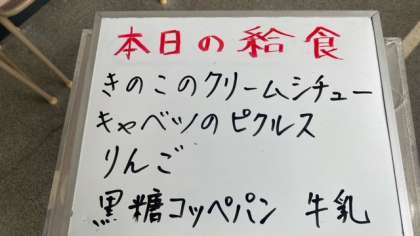 本日の給食
きのこのクリームシチュー
キャベツのピクルス
りんご
黒糖コッペパン 牛乳